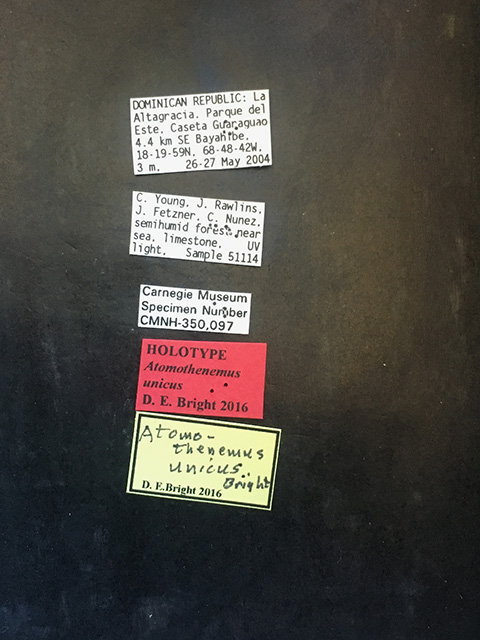 DOMINICAN REPUBLIC: La
Altagracia, Parque del
Este, Caseta Guaraguao
4.4 km SE Bayahibe,
18-19-59N, 68-48-42W,
3 m. 26-27 May 2004
C. Young, J. Rawlins,
J. Fetzner, C. Nunez,
semihumid forest near
sea, limestone, UV
light, Sample 51114
Carnegie Museum
Specimen Number
CMNH-350,097
HOLOTYPE
Atomothenemus
unicus
D. E. Bright 2016
Atomo-
thenemus
unicus
Bright
D. E.Bright 2016